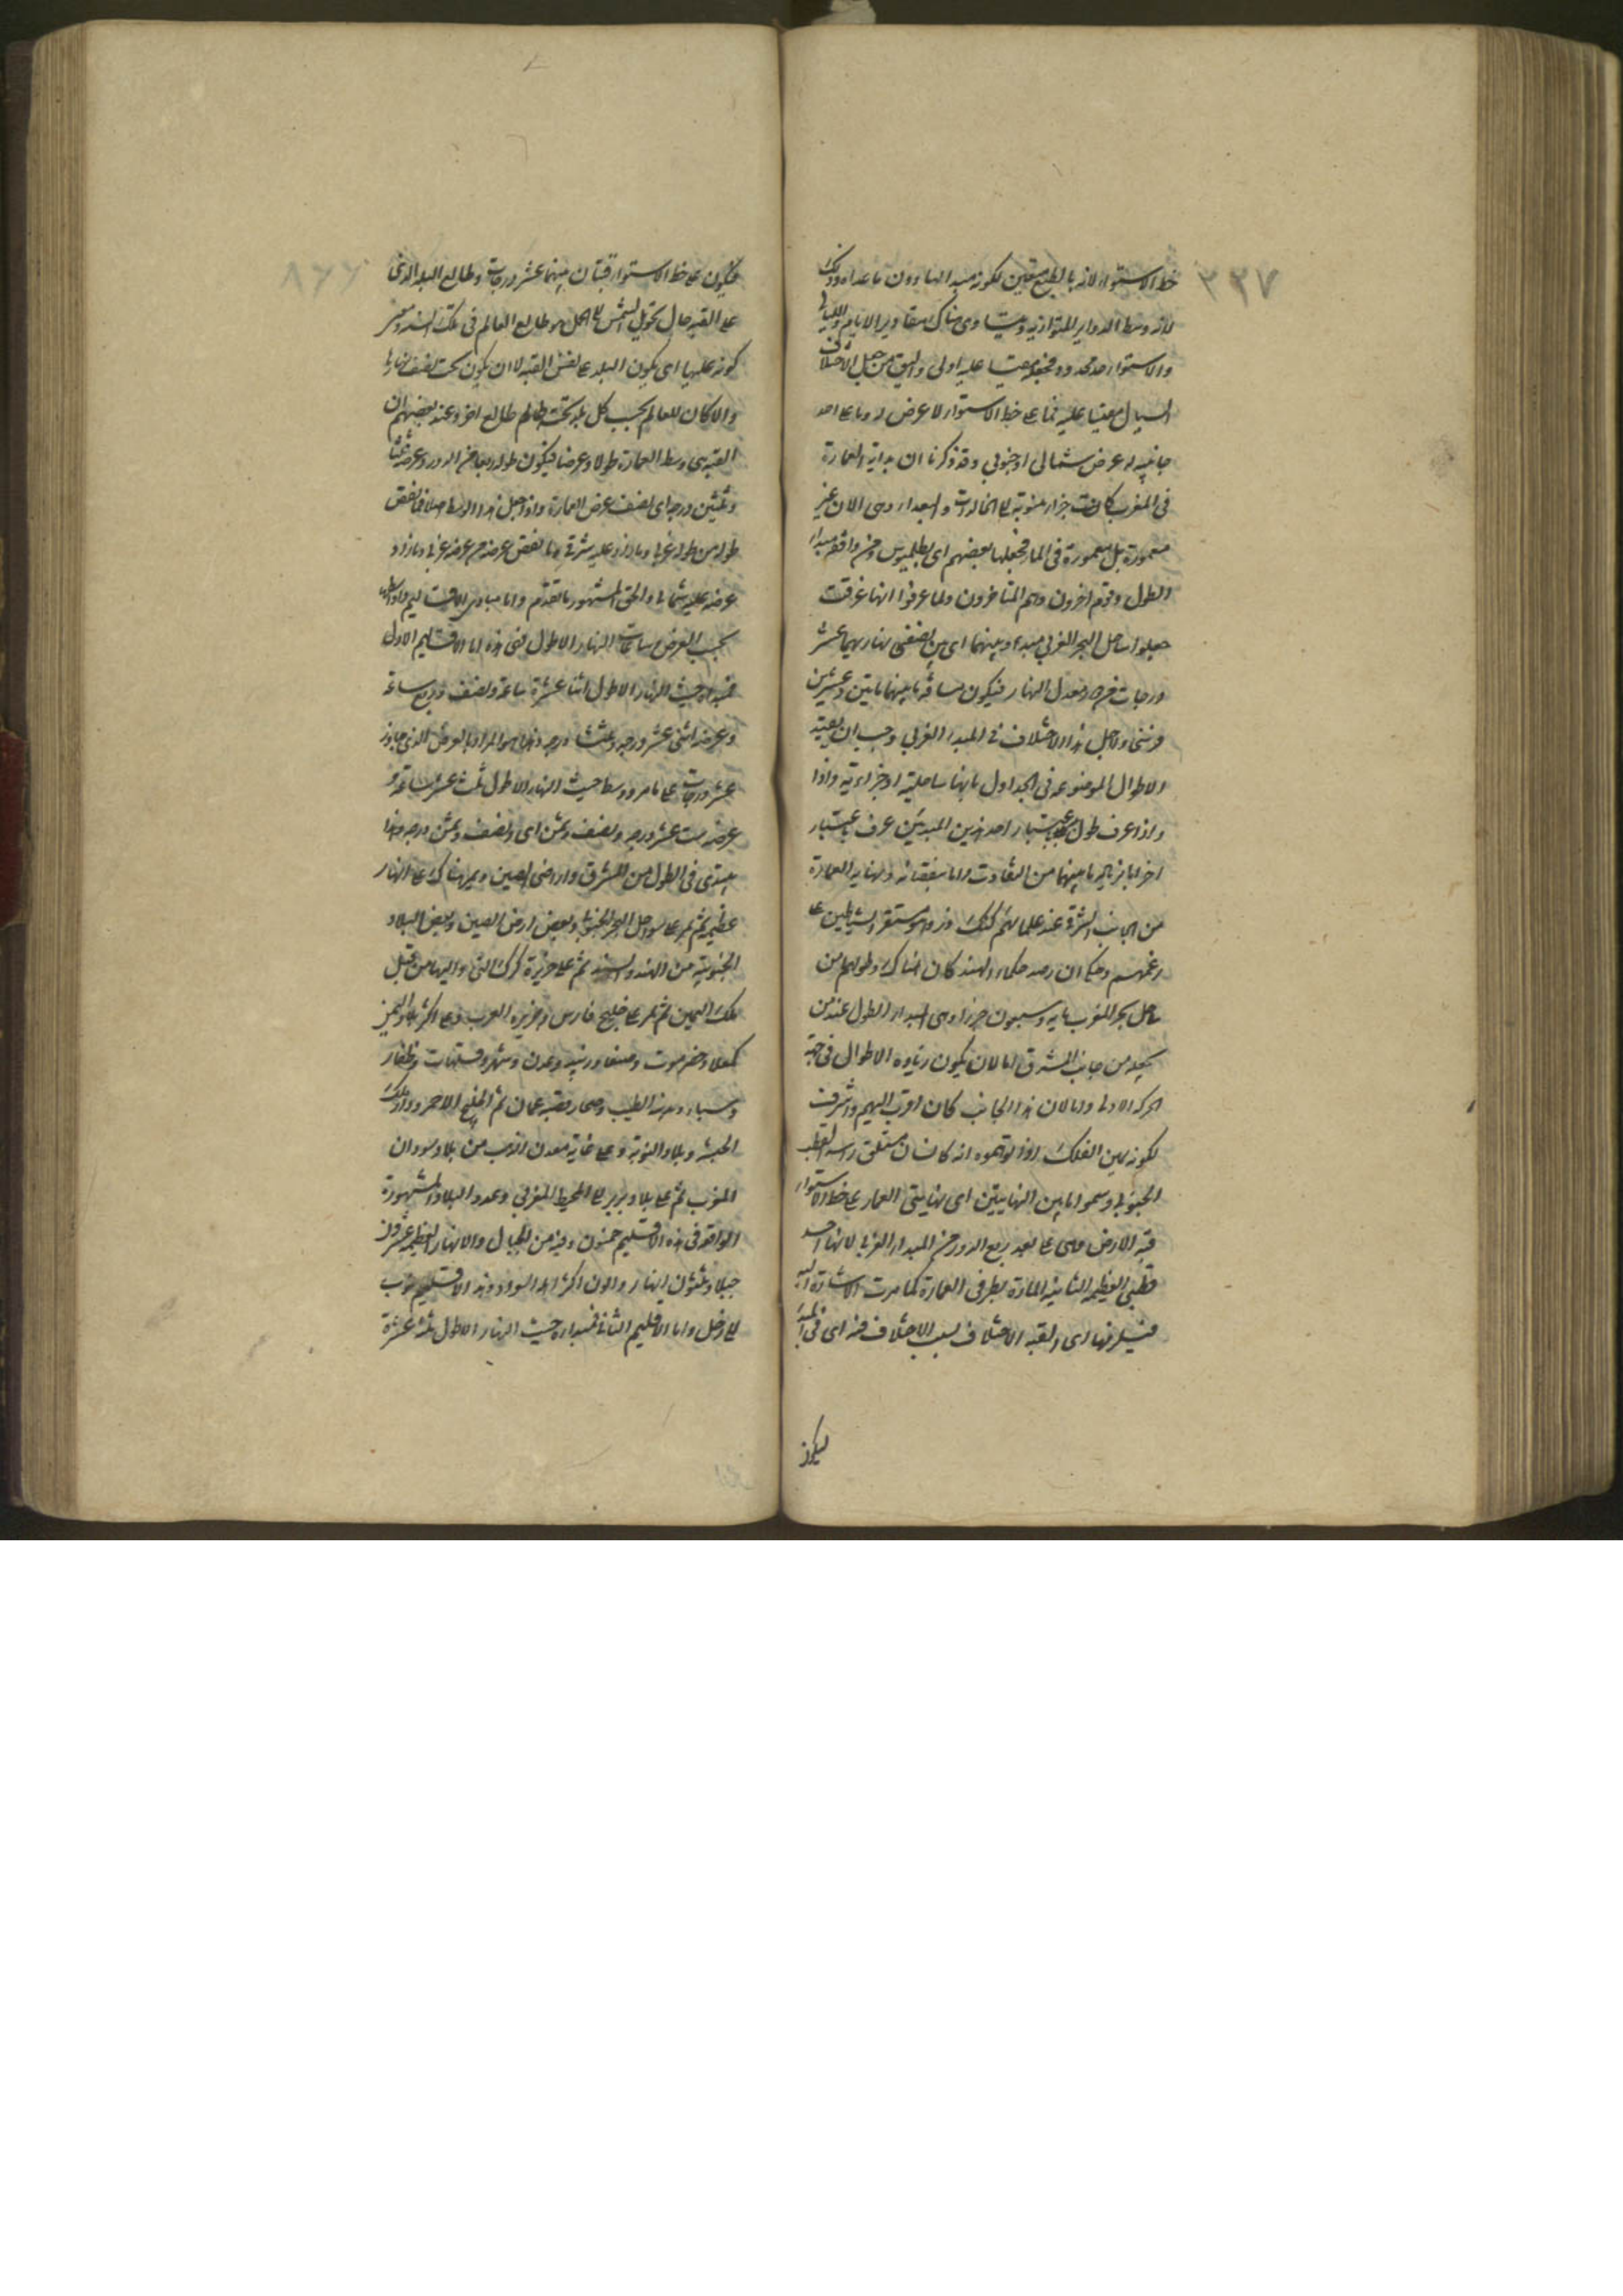 ٣٣٧
خط الاستواء لانه بالطبع متعين لكونه مبدءا لها دون ما عداه وذلك
لانه وسط الدواير المتوازيه ويتساوى هناك مقادير الايام والليالى
والاستواء حد محدود فجعله مقيسا عليه اولى واليق من جعل الاختلاف
السيال مقيسا عليه فما على خط الاستواء لا عرض له وما على احد
جانبيه له عرض شمالى او جنوبى وقد ذكرنا ان بداية العمارة
فى المغرب كانت جزاير منسوبة الى الخالدات والسعداء وهى الان غير
معمورة بل مغمورة فى الماء فجعلها بعضهم اى بطلميوس ومن وافقه مبداء
الطول وقوم اخرون وهم المتاخرون ولما عرفوا انها غرقت
جعلوا ساحل البحر الغربى مبدءا وبينهما اى بين نصفى نهاريهما عشر
درجات من معدل النهار فيكون مسافة ما بينهما مايتين وعشرين
فرسخا ولاجل هذا الاختلاف فى المبداء الغربى وجب ان يقيد
الاطوال الموضوعه فى الجداول بانها ساحلية او جزايرية واذا
واذا عرف طول باعتبار احد هذين المبدئين عرف باعتبار
اخر اما بزيادة ما بينهما من التفاوت واما بنقصانه ونهاية العمارة
من الجانب الشرقى عند علمائهم كنك دز وهو مستقر الشياطين على
زعمهم وحكى ان رصد حكماء الهند كان هناك وطولها من
ساحل بحر المغرب مايه وسبعون جزءا وهى المبداء الطول عند من
يجعله من جانب المشرق اما لان يكون زياده الاطوال فى جهة
الحركه الاولى واما لان هذا الجانب كان اقرب اليهم واشرف
لكونه يمين الفلك اذا توهموه انه كانسان مستلق راسه القطب
الجنوبى وسموا ما بين النهايتين اى نهايتى العماره على خط الاستواء
قبة الارض وهى على بعد ربع الدور من المبداء الغربى لانها احد
قطبى العظيمه الثانيه المارة بطرفى العمارة كما مرت الاشارة اليه
فيلزمها اى القبه الاختلاف بسبب الاختلاف فيه اى فى المبداء
ليكون
فيكون على خط الاستواء قبتان بينهما عشر درجات وطالع البلد الذى
على القبه حال تحويل الشمس الى الحمل هو طالع العالم فى تلك السنه
كونه عليها اى يكون البلد على نفس القبه لا ان يكون تحت نصف نهارها
والا كان للعالم بحسب كل بلد تحته طالع اخر وعند بعضهم ان
القبه هى وسط العمارة طولا وعرضا فيكون طولها ربعا من الدور وعرضها ثلثا
وثلثين درجه اى نصف عرض العمارة واذا جعل هذا الوسط اصلا فما نقص
طوله من طوله غربى وما زاد عليه شرقى وما نقص عرضه من عرضه جنوبى وما زاد
عرضه عليه شمالى والحق المشهور ما تقدم واما مبادى الاقاليم واواسطها
بحسب العرض وساعات النهار الاطول فهى هذه اما الاقليم الاول
فمبداه حيث النهار الاطول اثنا عشرة ساعة ونصف وربع ساعة
وعرضه اثنى عشر درجه وثلثا درجه وهذا هو المراد بالعرض الذى جاوز
عشر درجات على ما مر ووسطه حيث النهار الاطول ثلث عشرة ساعة و
عرضه ست عشر درجه ونصف وثمن اى ونصف وثمن درجه وهذا
يبتدى فى الطول من المشرق واراضى الصين ويمر هناك على انهار
عظيمه ثم يمر على سواحل البحر الجنوبى وبعض ارض الصين وبعض البلاد
الجنوبية من الهند والسند ثم على جزيرة كرك التى واليها من قبل
ملك اليمن ثم يمر على خليج فارس وجزيره العرب وعلى اكثر بلاد اليمن
كمعلا وحضرموت وصنعا وزبيد وعدن وشحر وقلهات وظفار
وسباء ومدينة الطيب وصحار قصبة عمان ثم الخليج الاحمر
الحبشه وبلاد النوبة وعلى غاية معدن الذهب من بلاد سودان
المغرب ثم على بلاد بربر الى المحيط المغربى وعدد البلاد المشهورة
الواقعه فى هذه الاقليم خمسون وفيه من الجبال والانهار العظيمه عشرون
جبلا وثلثون نهرا ولون اكثر اهله السواد وهذا الاقليم منسوب
الى زحل واما الاقليم الثانى فمبداه حيث النهار الاطول ثلثة عشرة